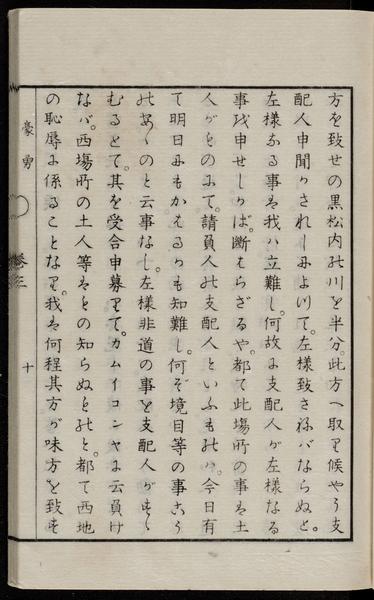 方を致せの黒松内の川を半分。此方へ取り候やう支
配人申聞かされしによりて。左様致さねバならぬと。
左様なる事は我ハ立難し。何故に支配人が左様なる
事我申せしかば。断もらざるや。都て此場所の事は土
人がものにて。請負人の支配人といふものハ。今日有
て明日にもかはるかも知難し。何ぞ境目等の事こう
のあゝのと云事なし。左様非道の事を支配人がすゝ
むるとて。其を受合申募りて。カムイコンヤに云負け
なバ。西場所の土人等はもの知らぬものと。都て西地
の恥辱に係ることなり。我は何程其方が味方を致す
豪勇
巻三
十